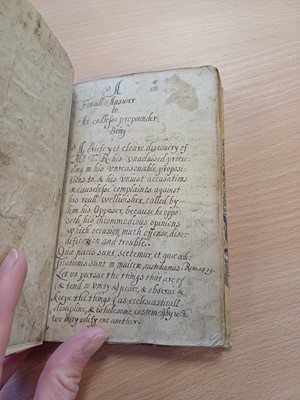 A
Finall Answer
to
An endlesse propounder:
Being
A briefe yet cleare discovery of
Mr T. R. his unadvised procee-
ding in his unreasonable propose-
tions to, & his unjust accusations
& causelesse complaints against
his reall wellwisher, called by
him his Opposer, because he oppo-
seth his incommodious opinions
which occasion much offence, disor-
der and trouble.
Quæ pacis sunt, sectemur, et quæ ædi-
ficationis sunt in invicem, custodiamus. Rom. 14. 19.
Let us pursue the things that are of
& tend to unity & peace, & observe &
keepe the things (as ecclesiasticall
discipline, & wholesome customes) by wch
we may edify one another.